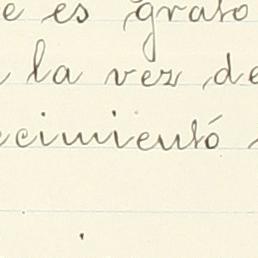 e es grato
la vez de
ecimientó